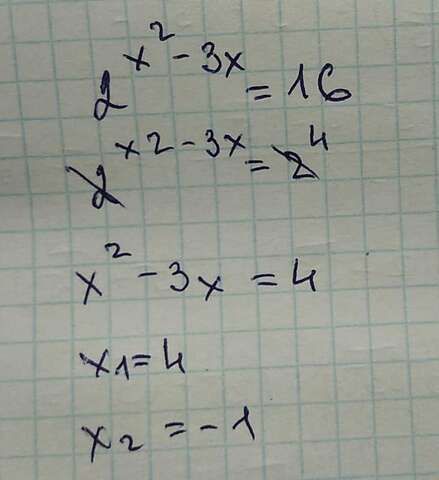 2^{x^2-3x} = 16
2^{x2-3x} = 2^4
x^2 - 3x = 4
x1 = 4
x2 = -1